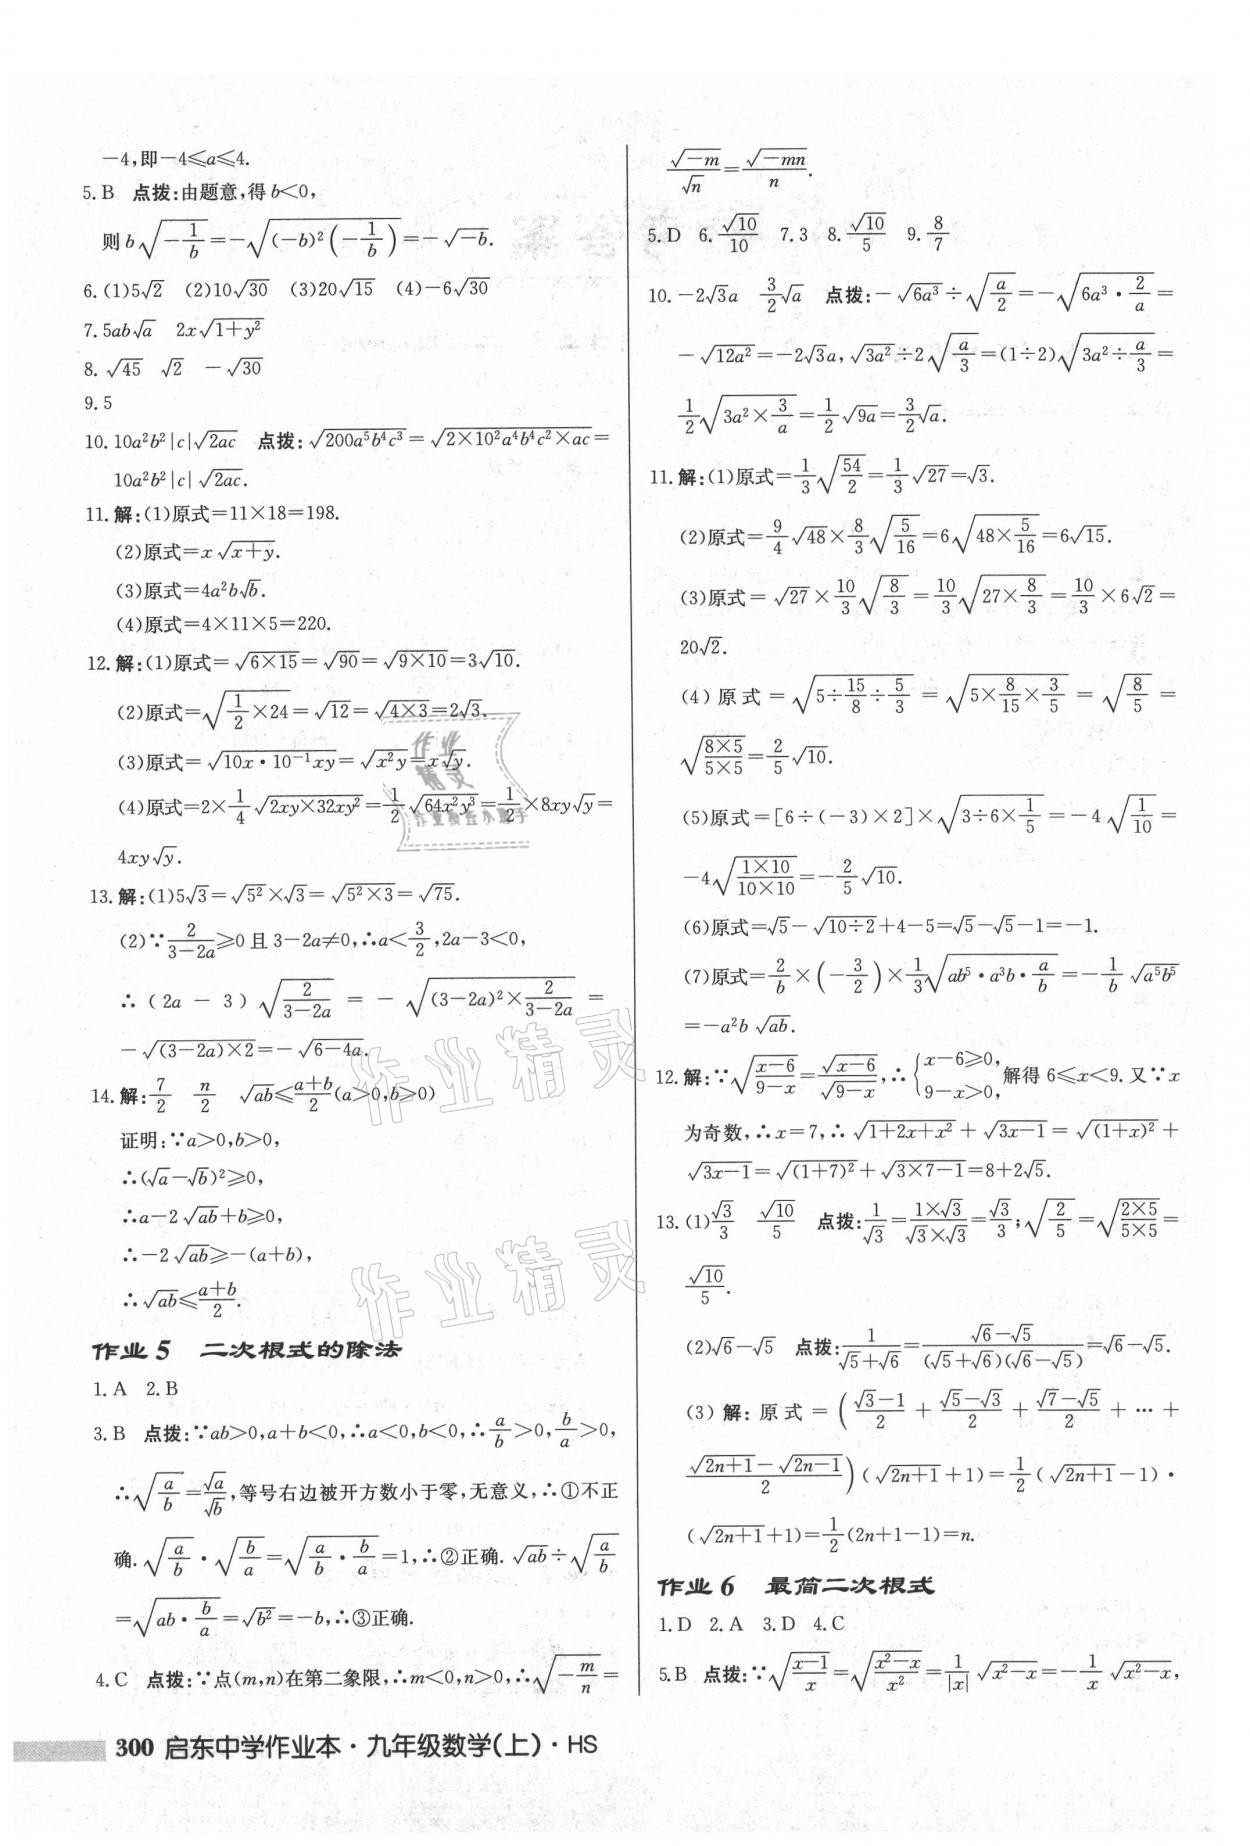 -4,即-4≤a≤4.
5.B 点拨:由题意,得 b<0,
则 b√(-1/b)=-√((-b)²(-1/b))=-√(-b).
6.(1)5√2 (2)10√30 (3)20√15 (4)-6√30
7.5ab√a 2x√(1+y²)
8.√45 √2 -√30
9.5
10.10a²b²|c|√(2ac) 点拨:√(200a⁵b⁴c³)=√(2×10²a⁴b⁴c²×ac)=
10a²b²|c|√(2ac).
11.解:(1)原式=11×18=198.
(2)原式=x√(x+y).
(3)原式=4a²b√b.
(4)原式=4×11×5=220.
12.解:(1)原式=√(6×15)=√90=√(9×10)=3√10.
(2)原式=√(1/2×24)=√12=√(4×3)=2√3.
(3)原式=√(10x·10⁻¹xy)=√(x²y)=x√y.
(4)原式=2×1/4√(2xy×32xy²)=1/2√(64x²y³)=1/2×8xy√y=
4xy√y.
13.解:(1)5√3=√5²×√3=√(5²×3)=√75.
(2)∵2/(3-2a)≥0 且 3-2a≠0,∴a<3/2,2a-3<0,
∴(2a-3)√(2/(3-2a))=-√((3-2a)²×2/(3-2a))=
-√((3-2a)×2)=-√(6-4a).
14.解:7/2 n/2 √(ab)≤(a+b)/2(a>0,b>0)
证明:∵a>0,b>0,
∴(√a-√b)²≥0,
∴a-2√(ab)+b≥0,
∴-2√(ab)≥-(a+b),
∴√(ab)≤(a+b)/2.
作业5 二次根式的除法
1.A 2.B
3.B 点拨:∵ab>0,a+b<0,∴a<0,b<0,∴a/b>0,b/a>0,
∴√(a/b)=√a/√b,等号右边被开方数小于零,无意义,∴①不正
确.√(a/b)·√(b/a)=√(a/b·b/a)=1,∴②正确.√(ab)÷√(a/b)
=√(ab·b/a)=√b²=-b,∴③正确.
4.C 点拨:∵点(m,n)在第二象限,∴m<0,n>0,∴√(-m/n)=
√(-m)/√n=√(-mn)/n.
5.D 6.√10/10 7.3 8.√10/5 9.8/7
10.-2√3a 3/2√a 点拨:-√(6a³)÷√(a/2)=-√(6a³·2/a)=
-√(12a²)=-2√3a,√(3a²)÷2√(a/3)=(1÷2)√(3a²÷a/3)=
1/2√(3a²×3/a)=1/2√(9a)=3/2√a.
11.解:(1)原式=1/3√(54/2)=1/3√27=√3.
(2)原式=9/4√48×8/3√(5/16)=6√(48×5/16)=6√15.
(3)原式=√27×10/3√(8/3)=10/3√(27×8/3)=10/3×6√2=
20√2.
(4)原式=√(5÷15/8÷5/3)=√(5×8/15×3/5)=√(8/5)=
√((8×5)/(5×5))=2/5√10.
(5)原式=[6÷(-3)×2]×√(3÷6×1/5)=-4√(1/10)=
-4√((1×10)/(10×10))=-2/5√10.
(6)原式=√5-√(10÷2)+4-5=√5-√5-1=-1.
(7)原式=2/b×(-3/2)×1/3√(ab⁵·a³b·a/b)=-1/b√(a⁵b⁵)
=-a²b√(ab).
12.解:∵√((x-6)/(9-x))=√(x-6)/√(9-x),∴{x-6≥0, 9-x>0, 解得 6≤x<9.又∵x
为奇数,∴x=7,∴√(1+2x+x²)+√(3x-1)=√((1+x)²)+
√(3x-1)=√((1+7)²)+√(3×7-1)=8+2√5.
13.(1)√3/3 √10/5 点拨:1/√3=(1×√3)/(√3×√3)=√3/3;√(2/5)=√((2×5)/(5×5))=
√10/5.
(2)√6-√5 点拨:1/(√5+√6)=(√6-√5)/((√5+√6)(√6-√5))=√6-√5.
(3)解:原式=((√3-1)/2+(√5-√3)/2+(√7-√5)/2+…+
(√(2n+1)-√(2n-1))/2)(√(2n+1)+1)=1/2(√(2n+1)-1)·
(√(2n+1)+1)=1/2(2n+1-1)=n.
作业6 最简二次根式
1.D 2.A 3.D 4.C
5.B 点拨:∵√((x-1)/x)=√((x²-x)/x²)=1/|x|√(x²-x)=-1/x√(x²-x),
300 启东中学作业本·九年级数学(上)·HS
作业精灵
作业精灵
作业
精灵